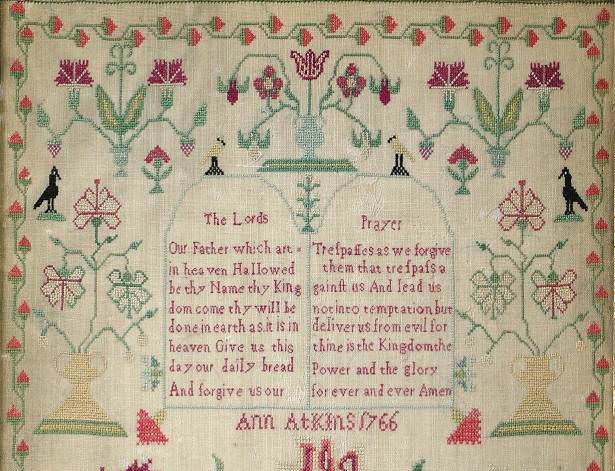 The Lords
Our Father which art
in heaven Hallowed
be thy Name thy King
dom come thy will be
done in earth as it is in
heaven Give us this
day our daily bread
And forgive us our
Prayer
Treſpaſſes as we forgive
them that treſpaſs a
gainſt us And lead us
not into temptation but
deliver us from evil for
thine is the Kingdom the
Power and the glory
for ever and ever Amen
Ann Atkins 1766